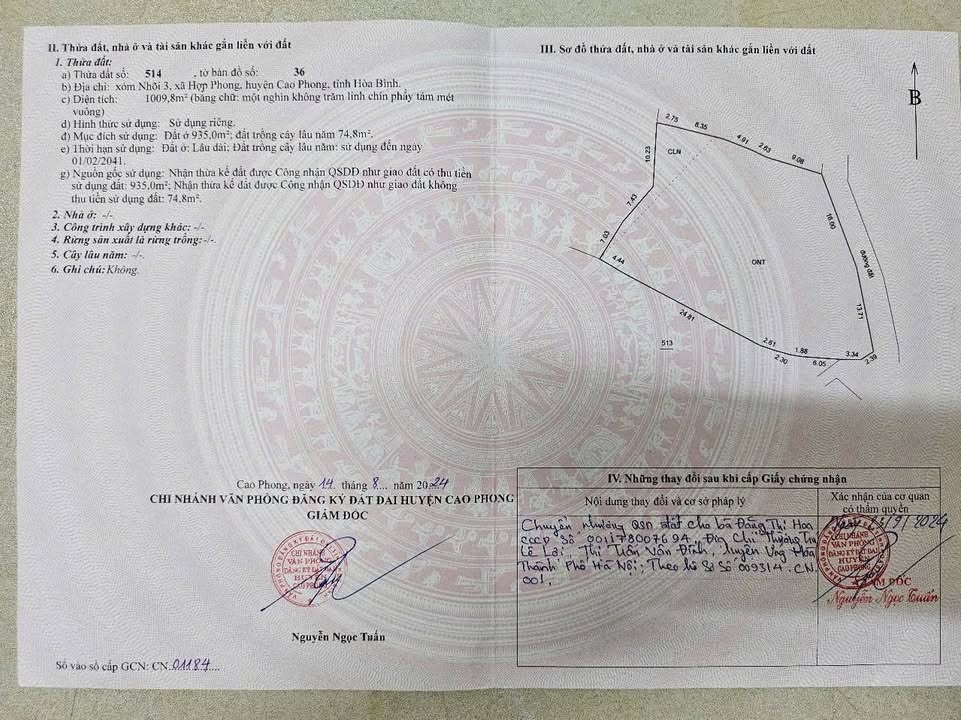 II. Thửa đất, nhà ở và tài sản khác gắn liền với đất
1. Thửa đất:
a) Thửa đất số: 514 , tờ bản đồ số: 36
b) Địa chỉ: xóm Nhõi 3, xã Hợp Phong, huyện Cao Phong, tỉnh Hòa Bình.
c) Diện tích: 1009,8m² (bằng chữ: một nghìn không trăm linh chín phẩy tám mét
vuông)
d) Hình thức sử dụng: Sử dụng riêng.
đ) Mục đích sử dụng: Đất ở 935,0m²; đất trồng cây lâu năm 74,8m².
e) Thời hạn sử dụng: Đất ở: Lâu dài; Đất trồng cây lâu năm: sử dụng đến ngày
01/02/2041.
g) Nguồn gốc sử dụng: Nhận thừa kế đất được Công nhận QSDĐ như giao đất có thu tiền
sử dụng đất: 935,0m²; Nhận thừa kế đất được Công nhận QSDĐ như giao đất không
thu tiền sử dụng đất: 74,8m².
2. Nhà ở: -/-
3. Công trình xây dựng khác: -/-
4. Rừng sản xuất là rừng trồng:-/-.
5. Cây lâu năm: -/-.
6. Ghi chú: Không.
Cao Phong, ngày 14 tháng 8... năm 2024
CHI NHÁNH VĂN PHÒNG ĐĂNG KÝ ĐẤT ĐAI HUYỆN CAO PHONG
GIÁM ĐỐC
CHI NHÁNH
VĂN PHÒNG
ĐĂNG KÝ ĐẤT ĐAI
HUYỆN
CAO PHONG
Nguyễn Ngọc Tuấn
Số vào sổ cấp GCN: CN 01184...
III. Sơ đồ thửa đất, nhà ở và tài sản khác gắn liền với đất
B
2.75
8.35
4.91
2.63
9.08
10.23
CLN
7.43
7.03
4.44
16.00
đường đất
ONT
24.81
13.71
513
2.61
2.30
1.88
6.05
3.34
2.39
IV. Những thay đổi sau khi cấp Giấy chứng nhận
Nội dung thay đổi và cơ sở pháp lý
Xác nhận của cơ quan
có thẩm quyền
Chuyển nhượng QSD đất cho bà Đặng Thị Hoa
CCCD Số 001178007694, Địa Chỉ Thường Trú
Lê Lợi, Thị Trấn Vân Đình, huyện Ứng Hòa
Thành Phố Hà Nội; Theo hồ Sơ Số 009314.CN
001.
/9/2024
CHI NHÁNH
VĂN PHÒNG
ĐĂNG KÝ ĐẤT ĐAI
HUYỆN
CAO PHONG
GIÁM ĐỐC
Nguyễn Ngọc Tuấn